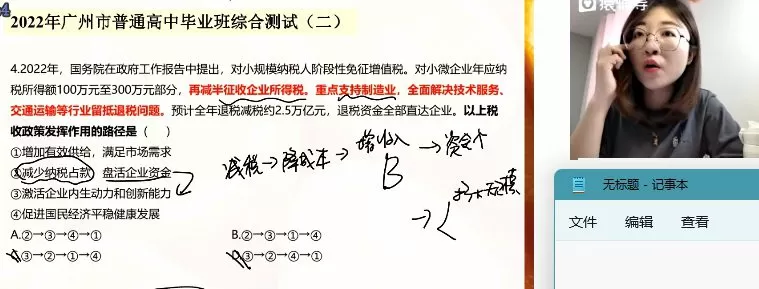 2022年广州市普通高中毕业班综合测试（二）
4.2022年，国务院在政府工作报告中提出，对小规模纳税人阶段性免征增值税。对小微企业年应纳
税所得额100万元至300万元部分，再减半征收企业所得税。重点支持制造业，全面解决技术服务、
交通运输等行业留抵退税问题。预计全年退税减税约2.5万亿元，退税资金全部直达企业。以上税
收政策发挥作用的路径是（ ）
①增加有效供给，满足市场需求
②减少纳税占款 盘活企业资金
③激活企业内生动力和创新能力
④促进国民经济平稳健康发展
A.②→③→④→①
B.②→③→①→④
③→②→①→④
③→②→④→①
减税→降成本→增收入→资金个
B
扩大规模
无标题 - 记事本
文件 编辑 查看